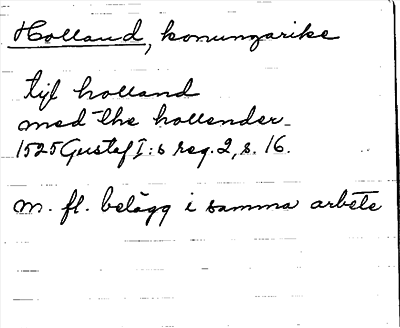 Holland, konungarike
tijl holland
med the hollender_
1525 Gustaf I:s reg. 2, s. 16.
m. fl. belägg i samma arbete